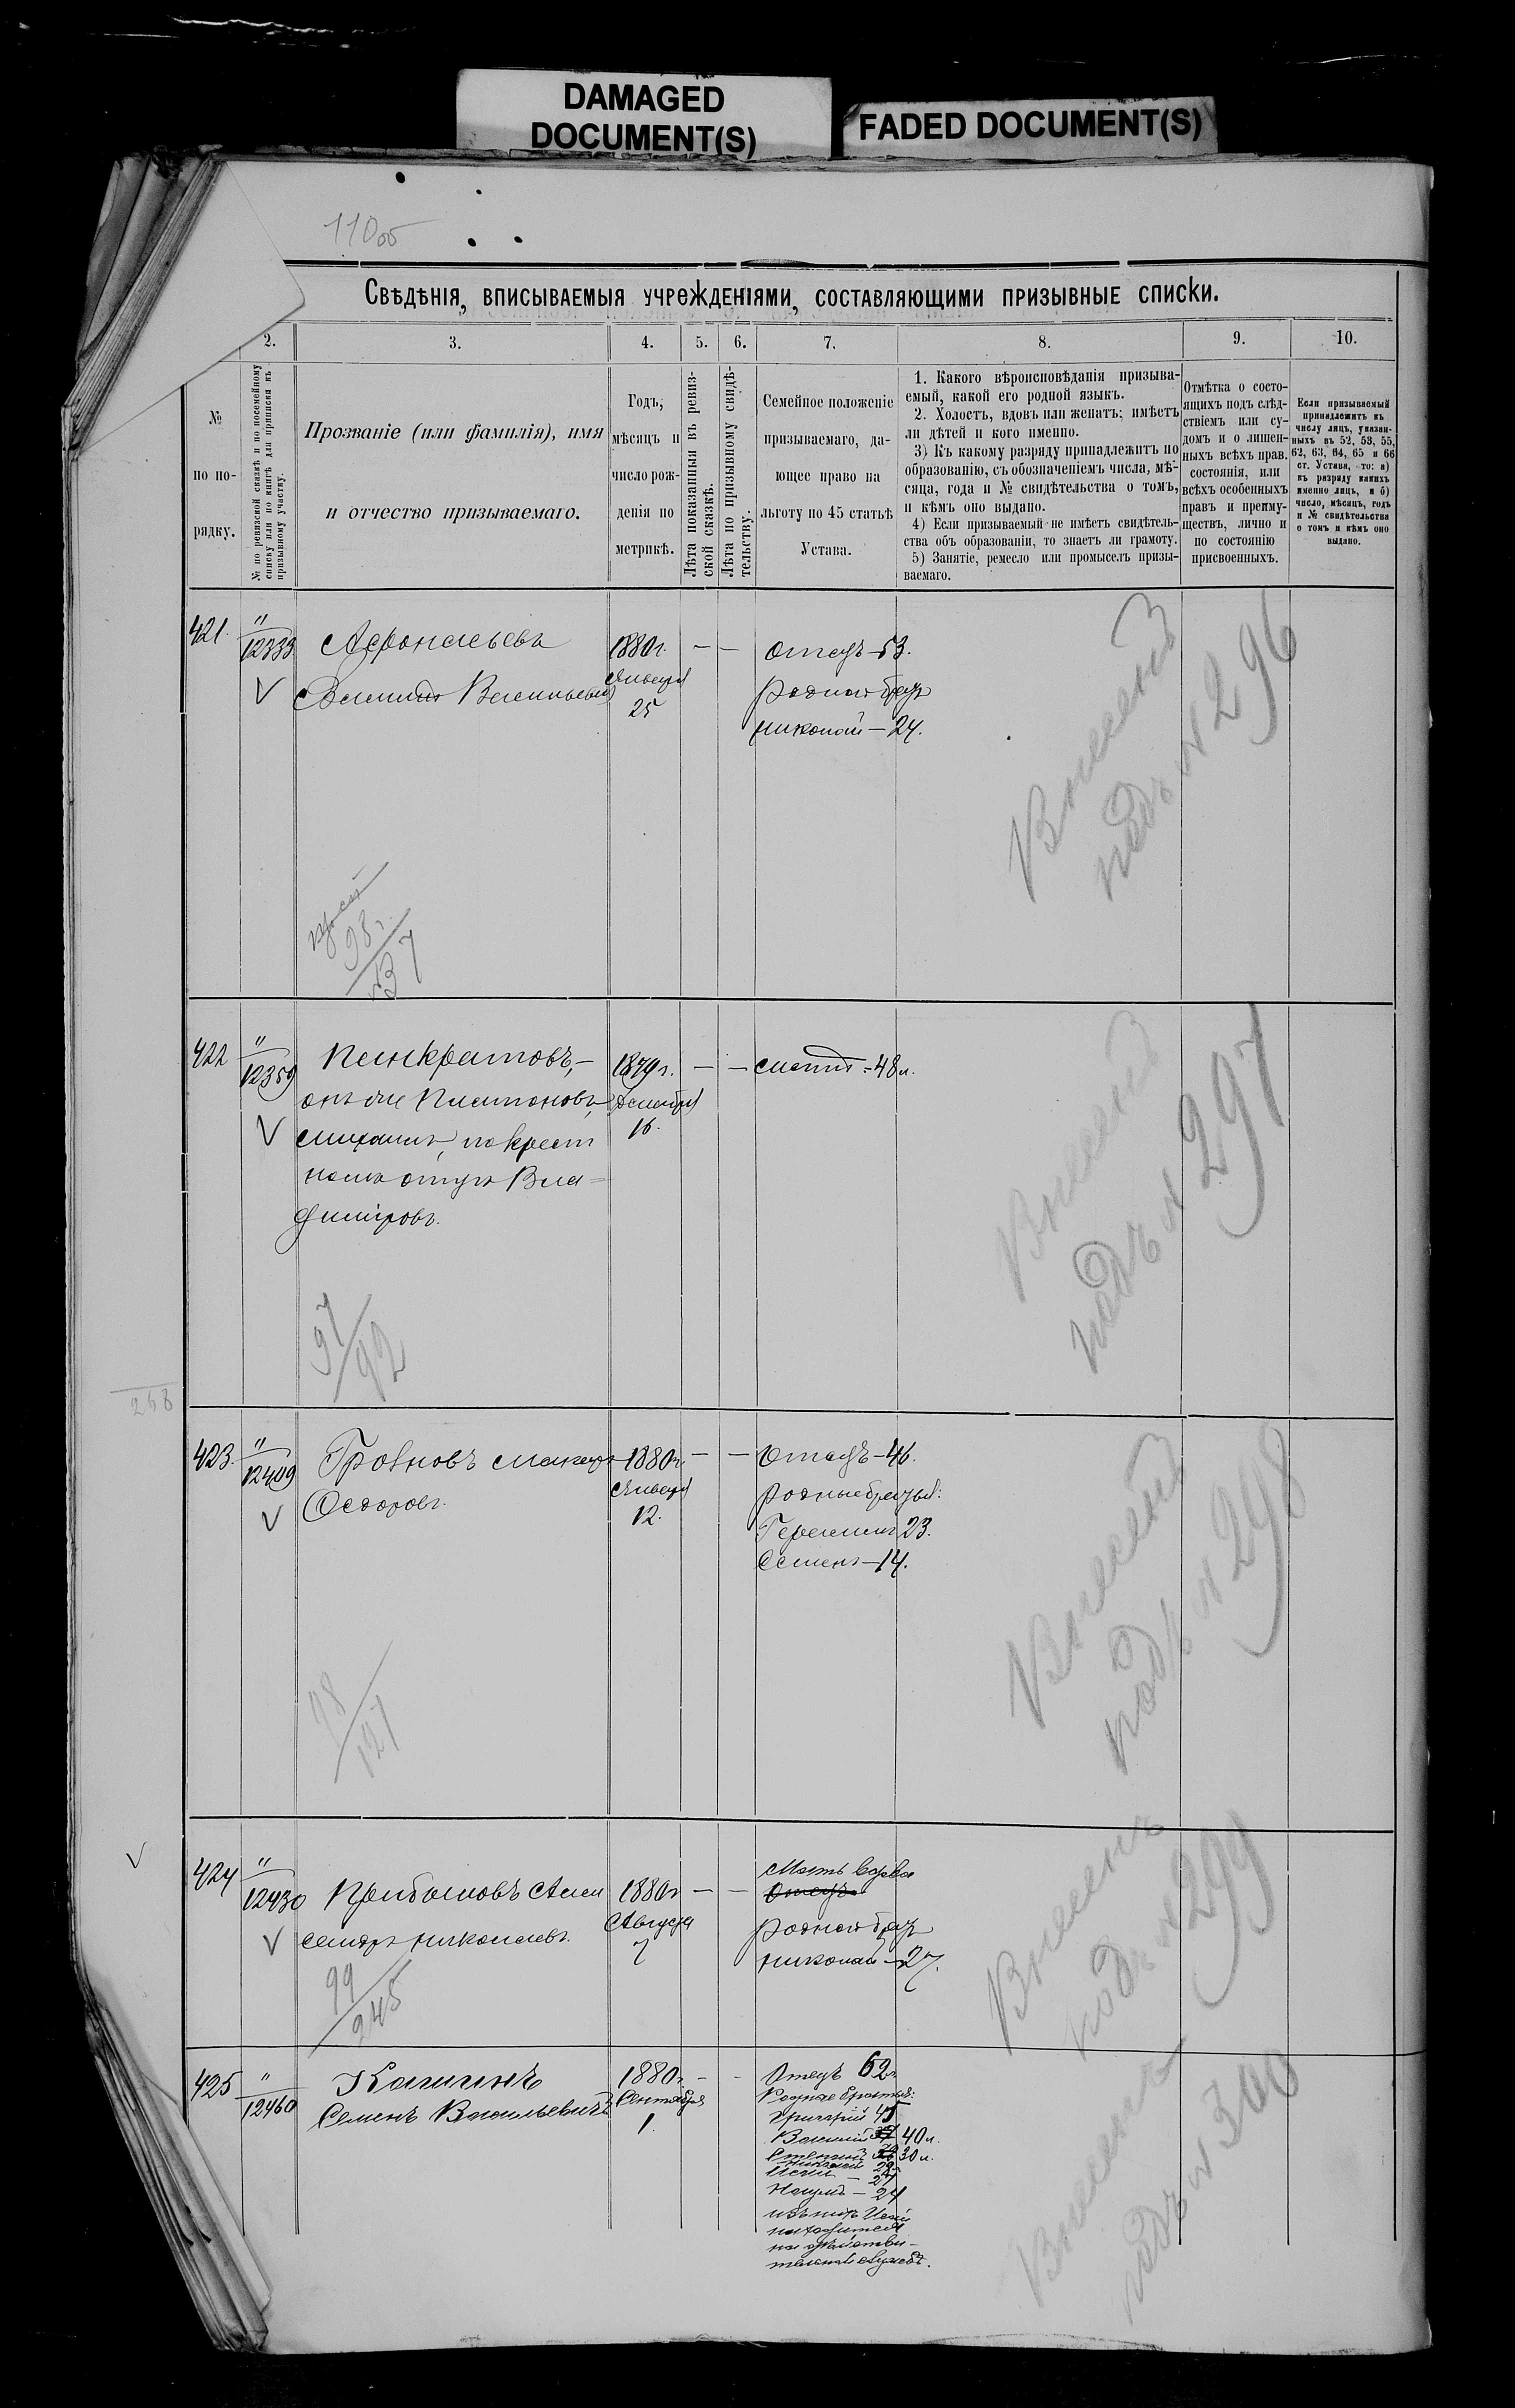 DAMAGED
DOCUMENT(S)
FADED DOCUMENT(S)
110об
Свѣдѣнія, вписываемыя учрежденіями, составляющими призывные списки.
2.
3.
4.
5.
6.
7.
8.
9.
10.
№
по по-
рядку.
№ по ревизской сказкѣ и по посемейному
списку или по книгѣ для приписки къ
призывному участку.
Прозваніе (или фамилія), имя
и отчество призываемаго.
Годъ,
мѣсяцъ и
число рож-
денія по
метрикѣ.
Лѣта показанныя въ ревиз-
ской сказкѣ.
Лѣта по призывному свидѣ-
тельству.
Семейное положеніе
призываемаго, да-
ющее право на
льготу по 45 статьѣ
Устава.
1. Какого вѣроисповѣданія призыва-
емый, какой его родной языкъ.
2. Холостъ, вдовъ или женатъ; имѣетъ
ли дѣтей и кого именно.
3) Къ какому разряду принадлежитъ по
образованію, съ обозначеніемъ числа, мѣ-
сяца, года и № свидѣтельства о томъ,
и кѣмъ оно выдано.
4) Если призываемый не имѣетъ свидѣтель-
ства объ образованіи, то знаетъ ли грамоту.
5) Занятіе, ремесло или промыселъ призы-
ваемаго.
Отмѣтка о состо-
ящихъ подъ слѣд-
ствіемъ или су-
домъ и о лишен-
ныхъ всѣхъ правъ
состоянія, или
всѣхъ особенныхъ
правъ и преиму-
ществъ, лично и
по состоянію
присвоенныхъ.
Если призываемый
принадлежитъ къ
числу лицъ, указан-
ныхъ въ 52, 53, 55,
62, 63, 64, 65 и 66
ст. Устава, то: а)
къ разряду какихъ
именно лицъ, и б)
число, мѣсяцъ, годъ
и № свидѣтельства
о томъ и кѣмъ оно
выдано.
421.
"
12333
Афонасьевъ
1880г.
Января
25
— —
Отецъ—53.
Родной братъ
Николай—24.
Внесенъ
подъ № 296
98г.
№37
422
"
12359
Панкратовъ,—
онъ же Платоновъ,
Михаилъ, по крест
ному отцу Вла=
диміровъ.
1879г.
16.
— —
Мать=48л.
Внесенъ
подъ № 297
97/92
268
423.
"
12409
Макаръ
Ѳедоровъ.
1880г.
Января
12.
— —
Отецъ—46.
Родные братья:
23.
Семенъ—14.
Внесенъ
подъ № 298
98/127
424
"
12430
Алек
сандръ Николаевъ.
1880г
Августа
7
— —
Мать вдова
Отецъ
Родной братъ
Николай—27.
Внесенъ
подъ № 299
99/245
425
"
12460
Семенъ Васильевичъ
1880г.
Сентября
1.
Отецъ 62г
Родные братья:
Григорій 45
Василій 40л.
30л.
Наумъ — 24
изъ нихъ Исай
находится
на дѣйстви-
тельной службѣ.
Внесенъ
подъ № 300